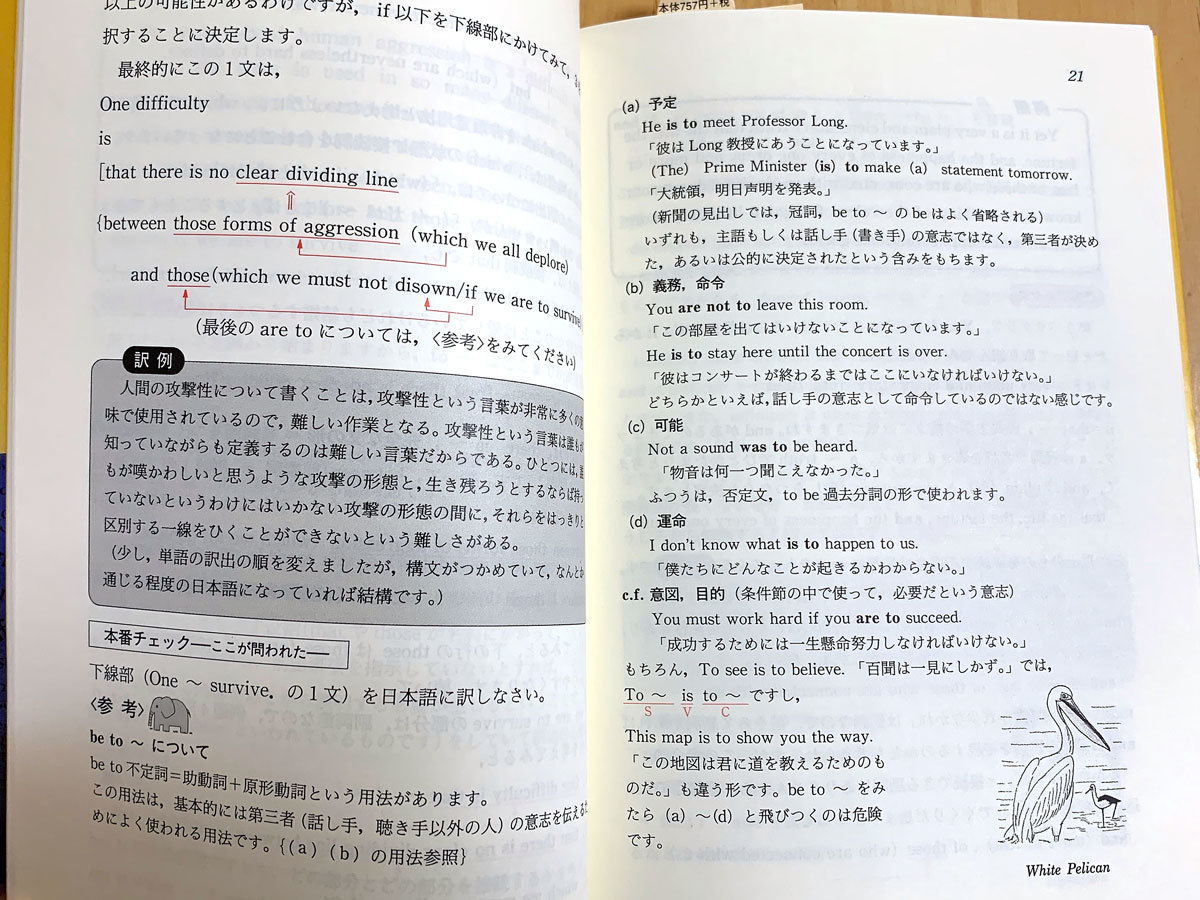 本体757円+税
以上の可能性があるわけですが, if 以下を下線部にかけてみて,
択することに決定します。
最終的にこの1文は,
One difficulty
is
[that there is no clear dividing line
{between those forms of aggression (which we all deplore)
and those(which we must not disown/if we are to survive
(最後の are to については,〈参考〉をみてください)
訳 例
人間の攻撃性について書くことは, 攻撃性という言葉が非常に多くの意
味で使用されているので, 難しい作業となる。攻撃性という言葉は誰もが
知っていながらも定義するのは難しい言葉だからである。ひとつには, 誰
もが嘆かわしいと思うような攻撃の形態と, 生き残ろうとするならば持っ
ていないというわけにはいかない攻撃の形態の間に, それらをはっきりと
区別する一線をひくことができないという難しさがある。
(少し, 単語の訳出の順を変えましたが, 構文がつかめていて, なんとか
通じる程度の日本語になっていれば結構です。)
本番チェック―ここが問われた―
下線部 (One ～ survive. の1文) を日本語に訳しなさい。
〈参 考〉
be to ～ について
be to 不定詞=助動詞+原形動詞という用法があります。
この用法は, 基本的には第三者 (話し手, 聴き手以外の人) の意志を伝えるた
めによく使われる用法です。{(a) (b) の用法参照}
21
(a) 予定
He is to meet Professor Long.
「彼は Long 教授にあうことになっています。」
(The) Prime Minister (is) to make (a) statement tomorrow.
「大統領, 明日声明を発表。」
(新聞の見出しでは, 冠詞, be to ～ の be はよく省略される)
いずれも, 主語もしくは話し手 (書き手) の意志ではなく, 第三者が決め
た, あるいは公的に決定されたという含みをもちます。
(b) 義務, 命令
You are not to leave this room.
「この部屋を出てはいけないことになっています。」
He is to stay here until the concert is over.
「彼はコンサートが終わるまではここにいなければいけない。」
どちらかといえば, 話し手の意志として命令しているのではない感じです。
(c) 可能
Not a sound was to be heard.
「物音は何一つ聞こえなかった。」
ふつうは, 否定文, to be 過去分詞の形で使われます。
(d) 運命
I don't know what is to happen to us.
「僕たちにどんなことが起きるかわからない。」
c.f. 意図, 目的 (条件節の中で使って, 必要だという意志)
You must work hard if you are to succeed.
「成功するためには一生懸命努力しなければいけない。」
もちろん, To see is to believe. 「百聞は一見にしかず。」では,
To ～ is to ～ ですし,
S V C
This map is to show you the way.
「この地図は君に道を教えるためのも
のだ。」も違う形です。be to ～ をみ
たら (a) ～(d) と飛びつくのは危険
です。
White Pelican